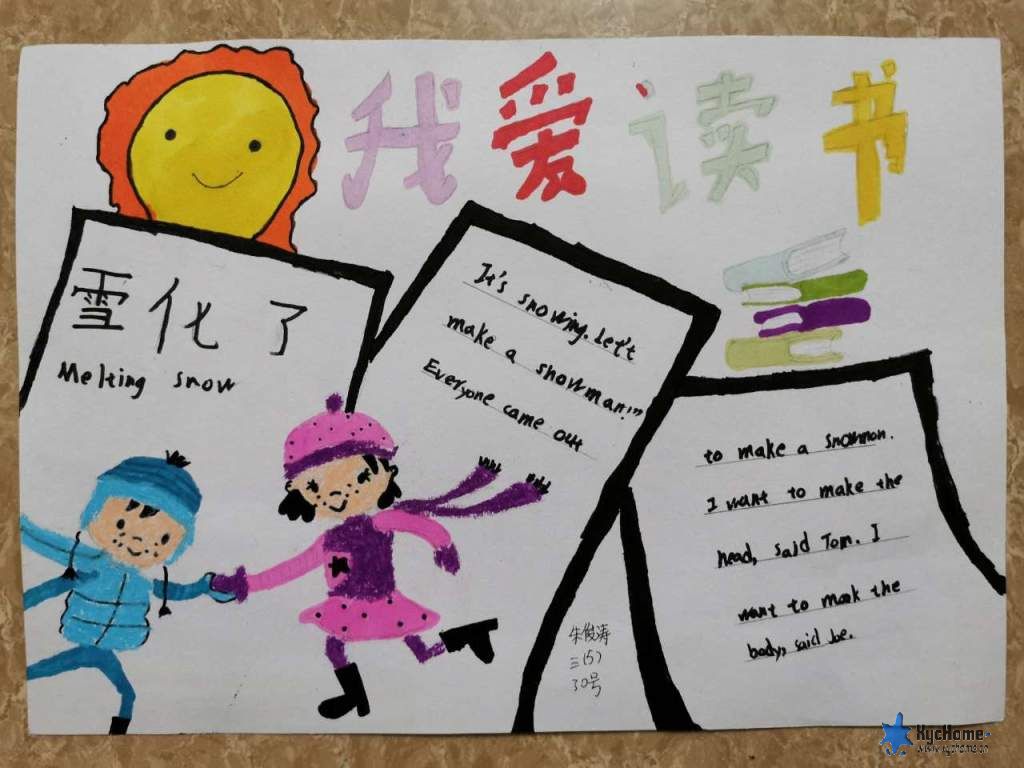 我爱读书
雪化了
Melting snow
It's snowing. Let't
make a snowman!"
Everyone came out
to make a snowman.
I want to make the
head, said Tom. I
want to mook the
body, said Joe.
朱俊涛
三(5)
30号
XycHome
www.xychome.cn